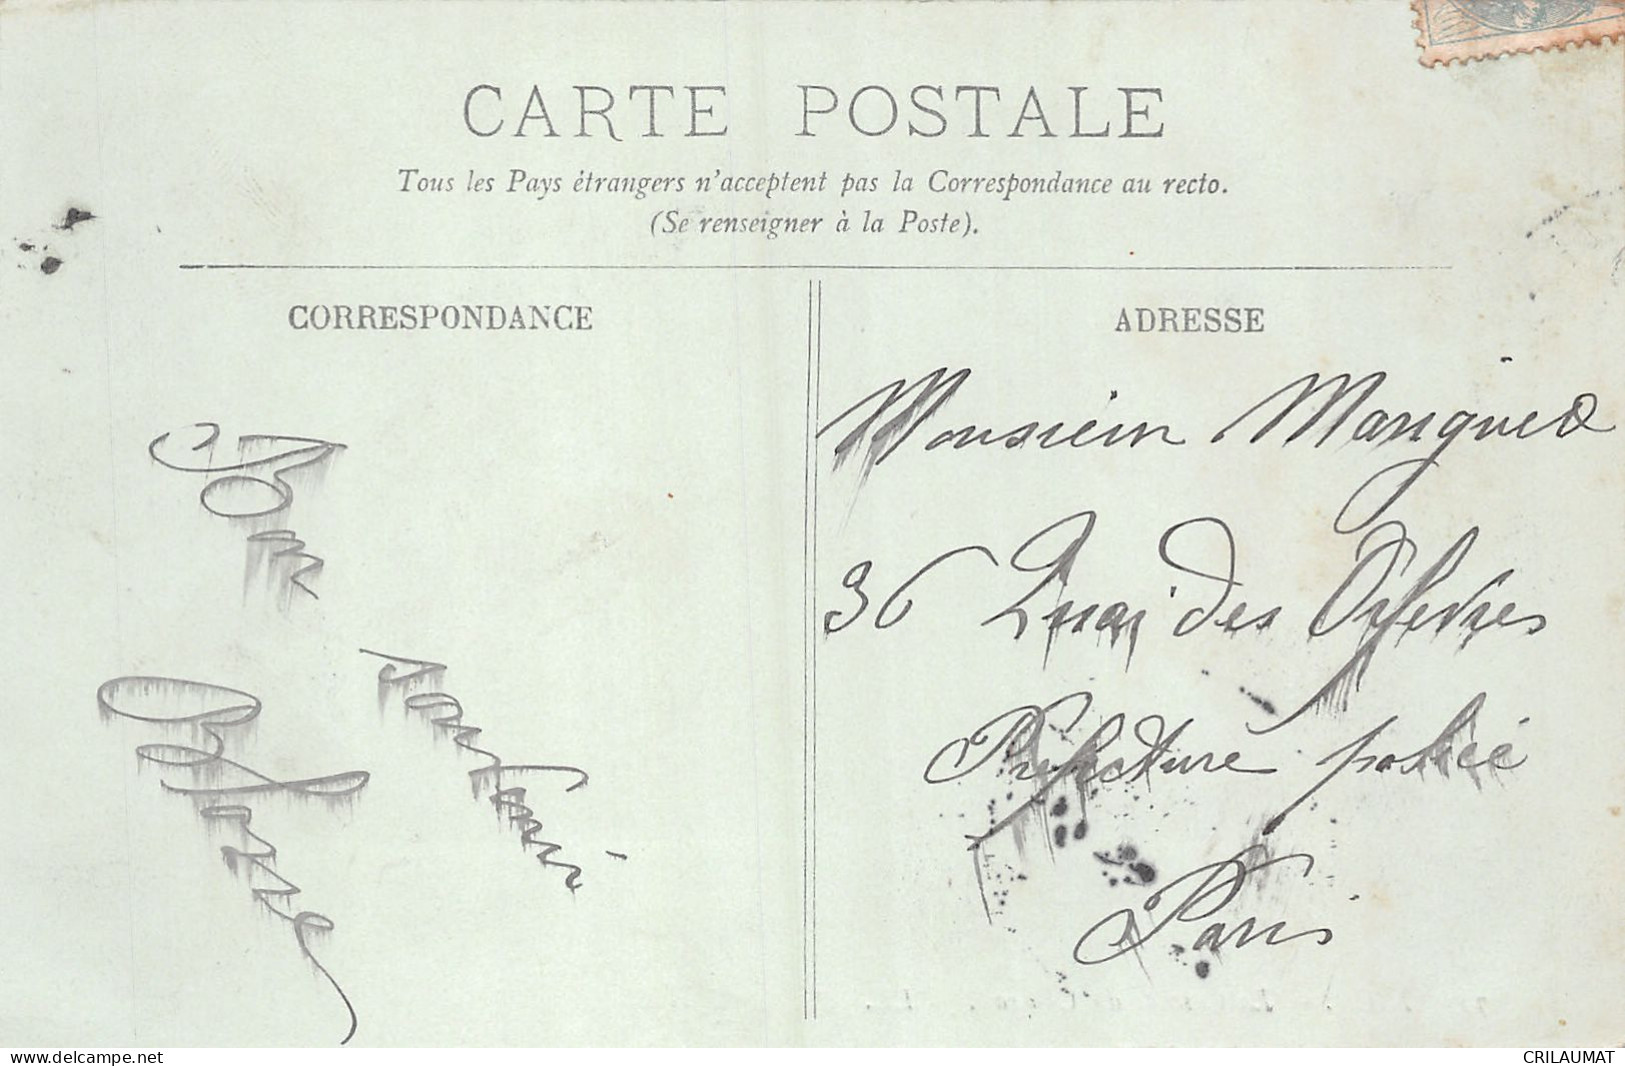 CARTE POSTALE
Tous les Pays étrangers n'acceptent pas la Correspondance au recto.
(Se renseigner à la Poste).
CORRESPONDANCE
ADRESSE
Bon
souvenir
Monsieur
36 Quai des Orfevres
Prefecture police
Paris
www.delcampe.net
CRILAUMAT